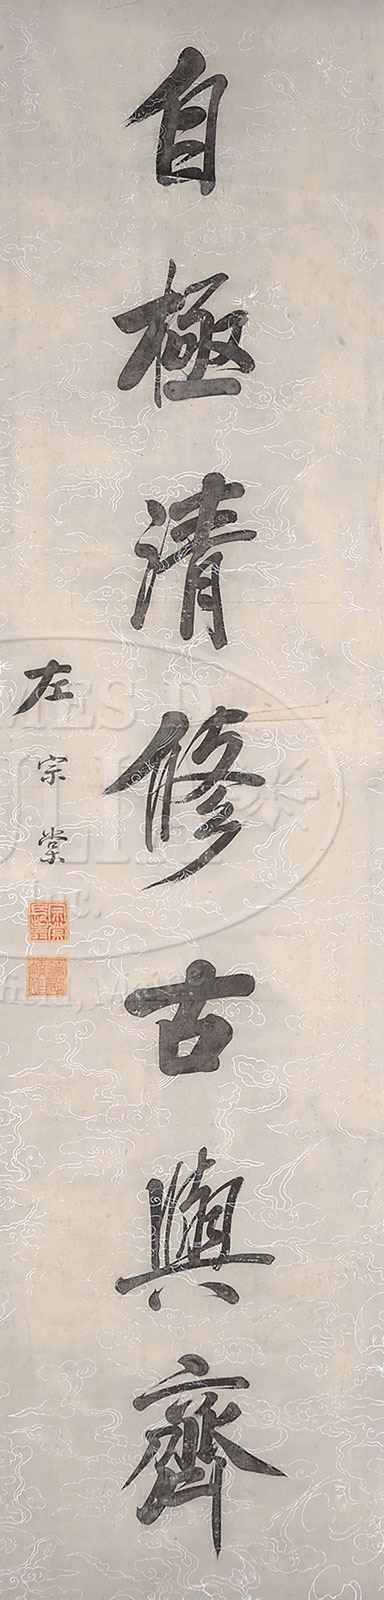 自極清修古與齊
左宗棠